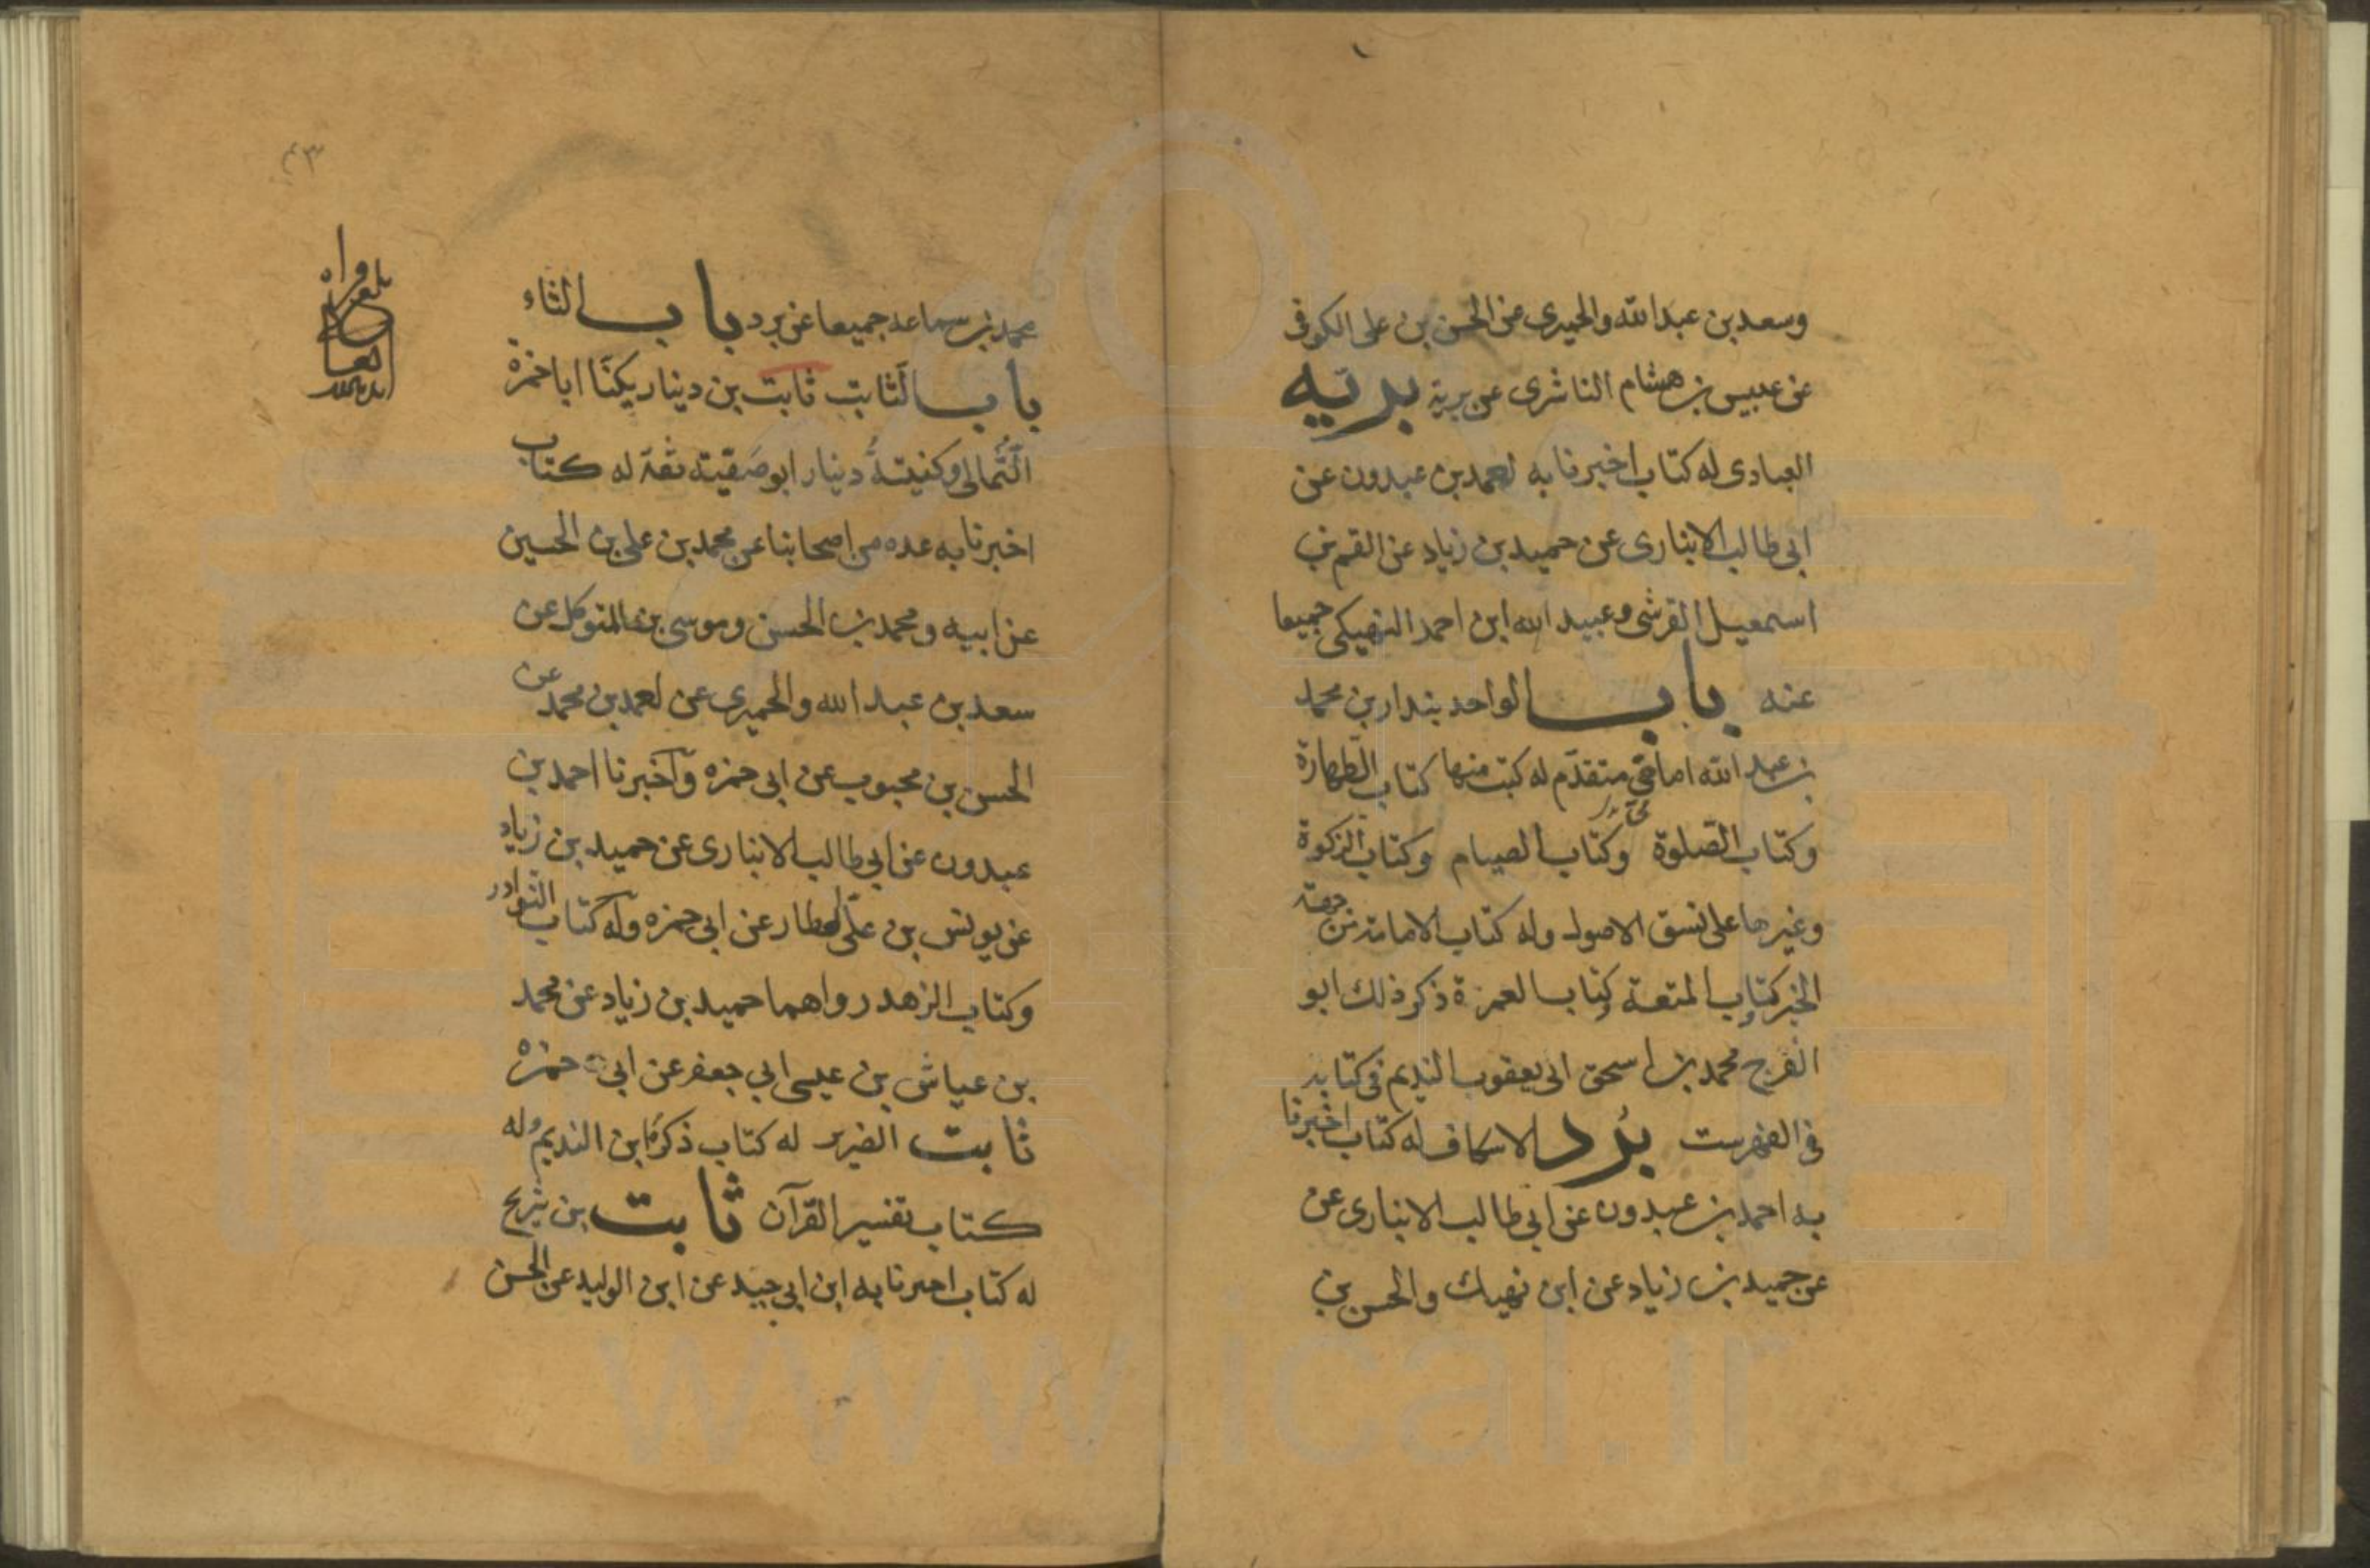 وسعد بن عبدالله والحميرى عن الحسن بن على الكوفى
عن عبيس بن هشام الناشرى عن برية بريّه
العبادى له كتاب اخبرنا به احمد بن عبدون عن
ابى طالب الانبارى عن حميد بن زياد عن القسم بن
اسمعيل القرشى وعبيد الله ابن احمد النهيكى جميعا
عنه باب الواحد بندار بن محمد
بن عبد الله امامى متقدّم له كتب منها كتاب الطّهارة
وكتاب الصّلوة وكتاب الصيام وكتاب الزّكوة
وغيرها على نسق الاصول وله كتاب الامامة من جهة
الخبر وكتاب المتعة وكتاب العمرة ذكر ذلك ابو
الفرج محمد بن اسحق ابى يعقوب النديم فى كتابه
فى الفهرست بُرد الاسكاف له كتاب اخبرنا
به احمد بن عبدون عن ابى طالب الانبارى عن
عن حميد بن زياد عن ابن نهيك والحسن بن
٤٣
محمد بن سماعه جميعا عن برد باب الثاء
باب الثابت ثابت بن دينار يكنّا ابا حمزة
الثُّمالى وكنيتهُ دينار ابو صَفيّة ثقة له كتاب
اخبرنا به عده من اصحابنا عن محمد بن على بن الحسين
عن ابيه ومحمد بن الحسن وموسى بن المتوكل عن
سعد بن عبد الله والحميرى عن احمد بن محمد عن
الحسن بن محبوب عن ابى حمزه وآخبرنا احمد بن
عبدون عن ابى طالب الانبارى عن حميد بن زياد
عن يونس بن علّى العطار عن ابى حمزه وله كتاب النّوادر
وكتاب الزهد رواهما حميد بن زياد عن محمد
بن عياش بن عيسى ابي جعفر عن ابى حمزه
ثابت الضرير له كتاب ذكرهُ ابن النديم وله
كتاب تفسير القرآن ثابت بن شريح
له كتاب اخبرنا به ابن ابى جيد عن ابن الوليد عن الحسن
www.ical.ir